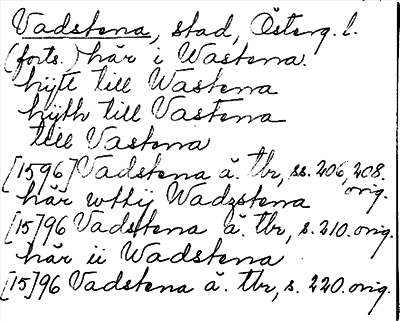 Vadstena, stad, Österg. l.
(forts.) här i Wastena
hijt till Wastena
hijth till Vastena
till Vastena
[1596] Vadstena ä. tbr, ss. 206, 208. orig.
här wttij Wadzstena
[15]96 Vadstena ä. tbr, s. 210. orig.
här ii Wadstena
[15]96 Vadstena ä. tbr, s. 220. orig.